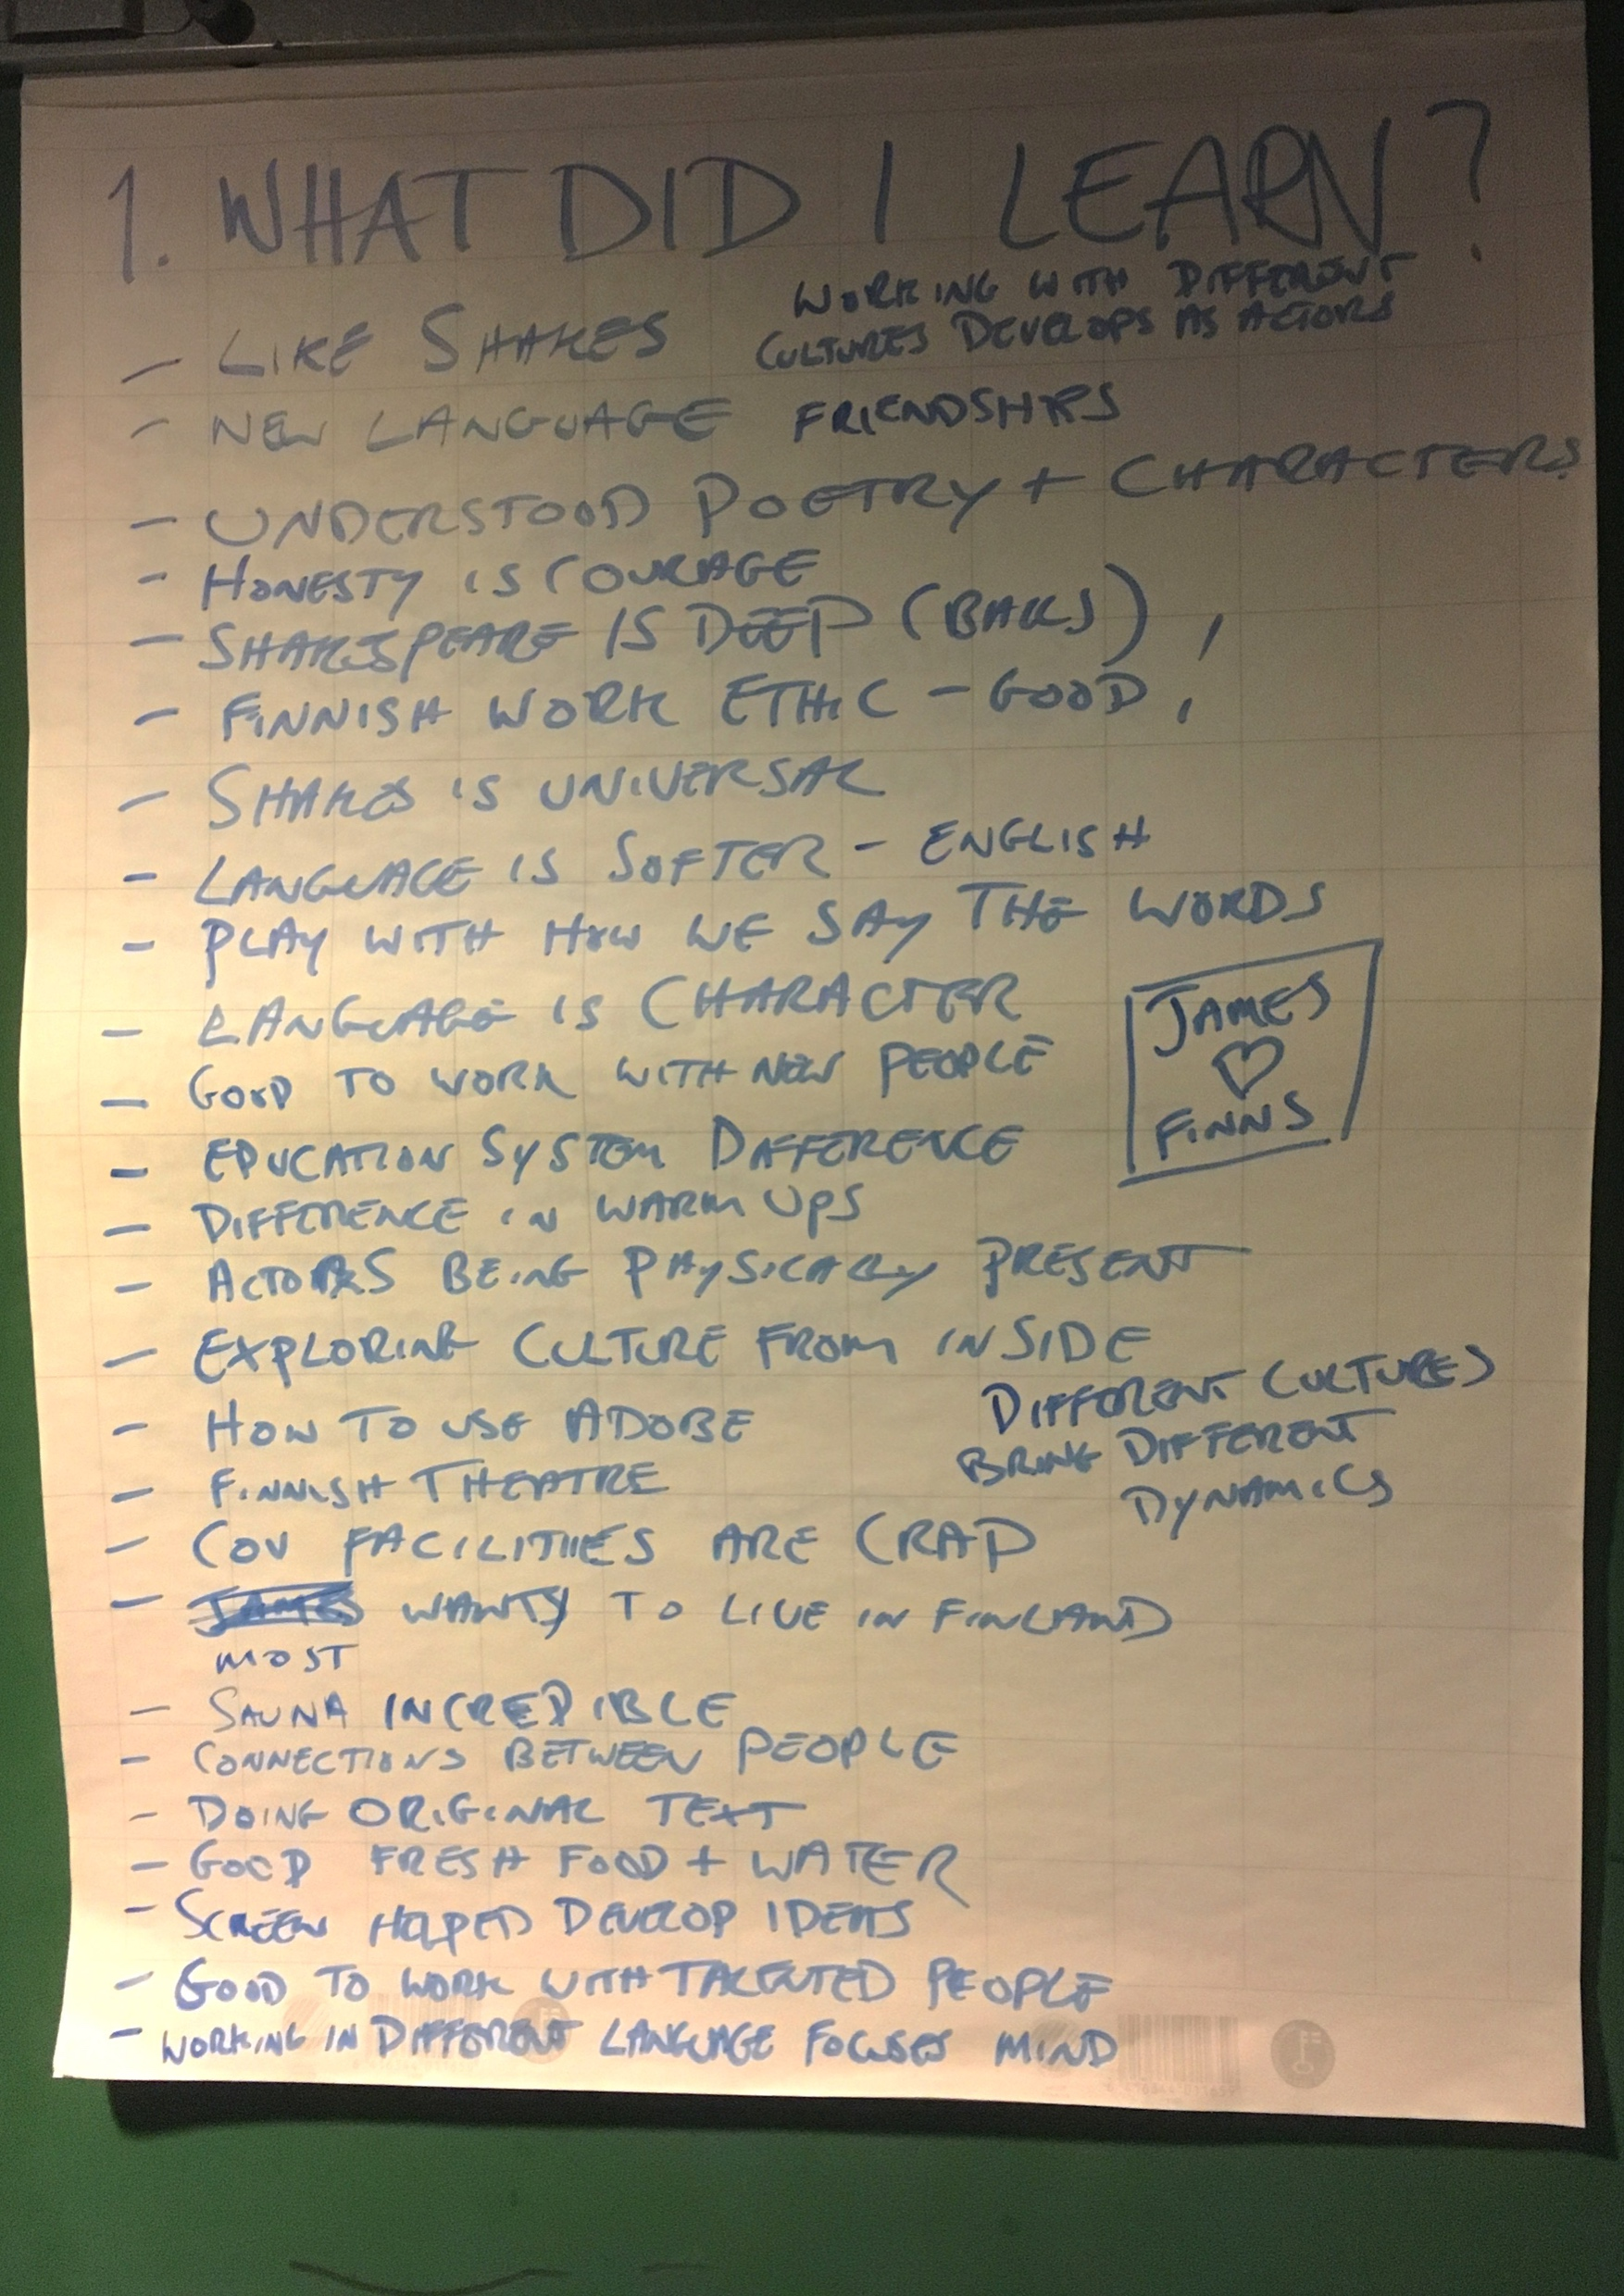 1. WHAT DID I LEARN?
WORKING WITH DIFFERENT
CULTURES DEVELOPS AS ACTORS
- LIKE SHAKES
- NEW LANGUAGE FRIENDSHIPS
- UNDERSTOOD POETRY + CHARACTERS
- HONESTY IS COURAGE
- SHAKESPEARE IS DEEP (BALLS) !
- FINNISH WORK ETHIC - GOOD !
- SHAKES IS UNIVERSAL
- LANGUAGE IS SOFTER - ENGLISH
- PLAY WITH HOW WE SAY THE WORDS
- LANGUAGE IS CHARACTER
- GOOD TO WORK WITH NEW PEOPLE
JAMES
♡
FINNS
- EDUCATION SYSTEM DIFFERENCE
- DIFFERENCE IN WARM UPS
- ACTORS BEING PHYSICALLY PRESENT
- EXPLORING CULTURE FROM INSIDE
- HOW TO USE ADOBE
DIFFERENT CULTURES
BRING DIFFERENT
DYNAMICS
- FINNISH THEATRE
- COV FACILITIES ARE CRAP
- JAMES WANTS TO LIVE IN FINLAND
MOST
- SAUNA INCREDIBLE
- CONNECTIONS BETWEEN PEOPLE
- DOING ORIGINAL TEXT
- GOOD FRESH FOOD + WATER
- SCREEN HELPED DEVELOP IDEAS
- GOOD TO WORK WITH TALENTED PEOPLE
- WORKING IN DIFFERENT LANGUAGE FOCUSES MIND